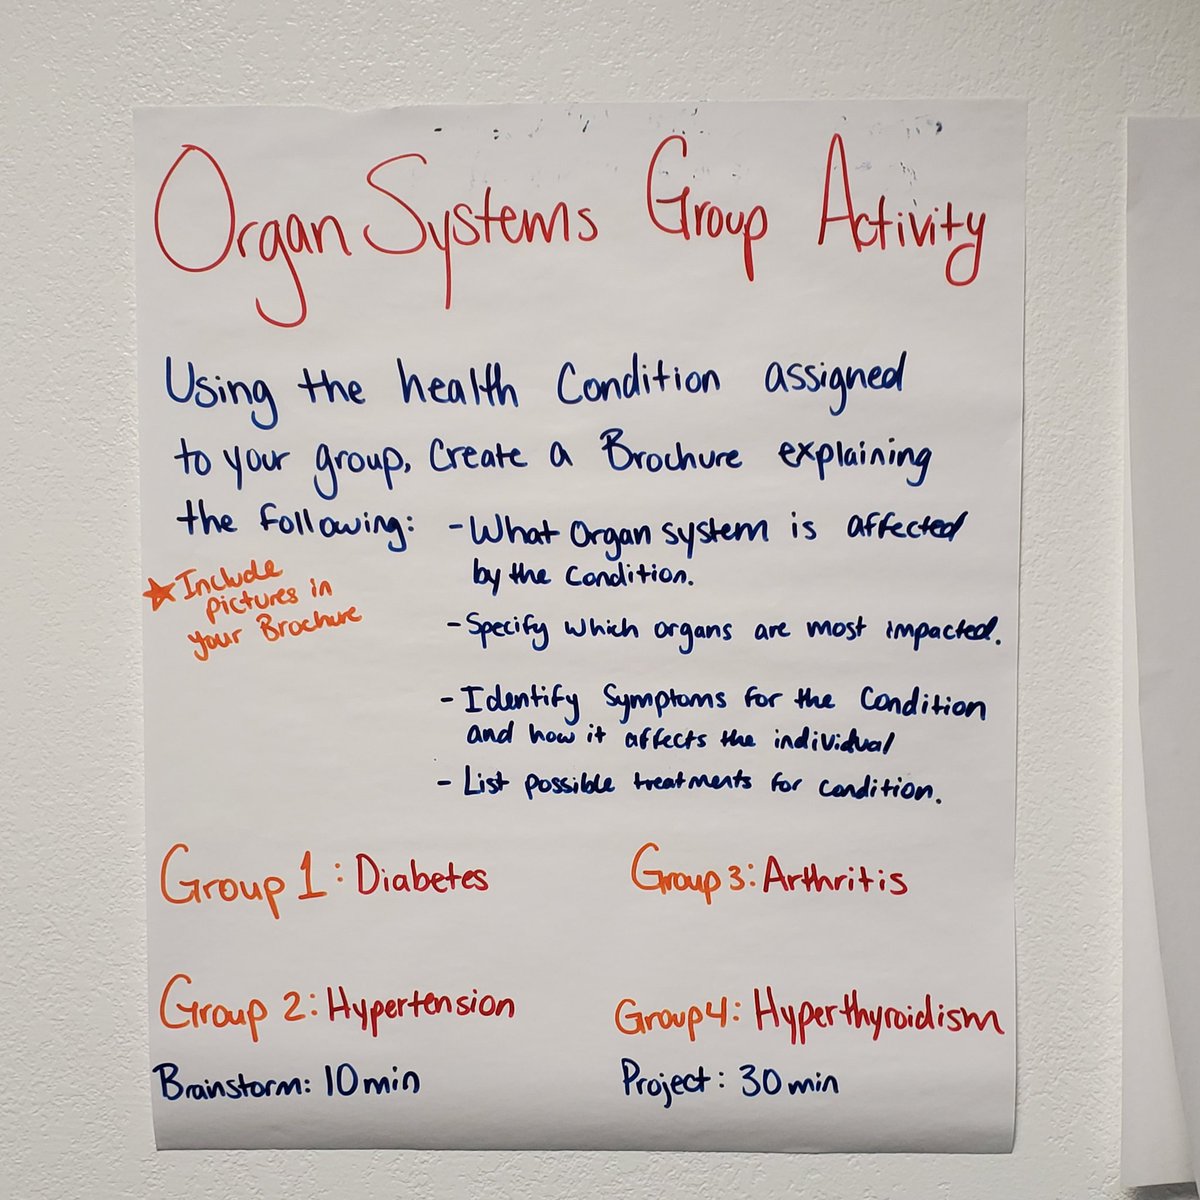 Organ Systems Group Activity
Using the health Condition assigned
to your group, Create a Brochure explaining
the following:
- What Organ system is affected
by the Condition.
- Specify which organs are most impacted.
- Identify Symptoms for the Condition
and how it affects the individual
- List possible treatments for condition.
★ Include
pictures in
your Brochure
Group 1: Diabetes
Group 3: Arthritis
Group 2: Hypertension
Group 4: Hyperthyroidism
Brainstorm: 10 min
Project: 30 min